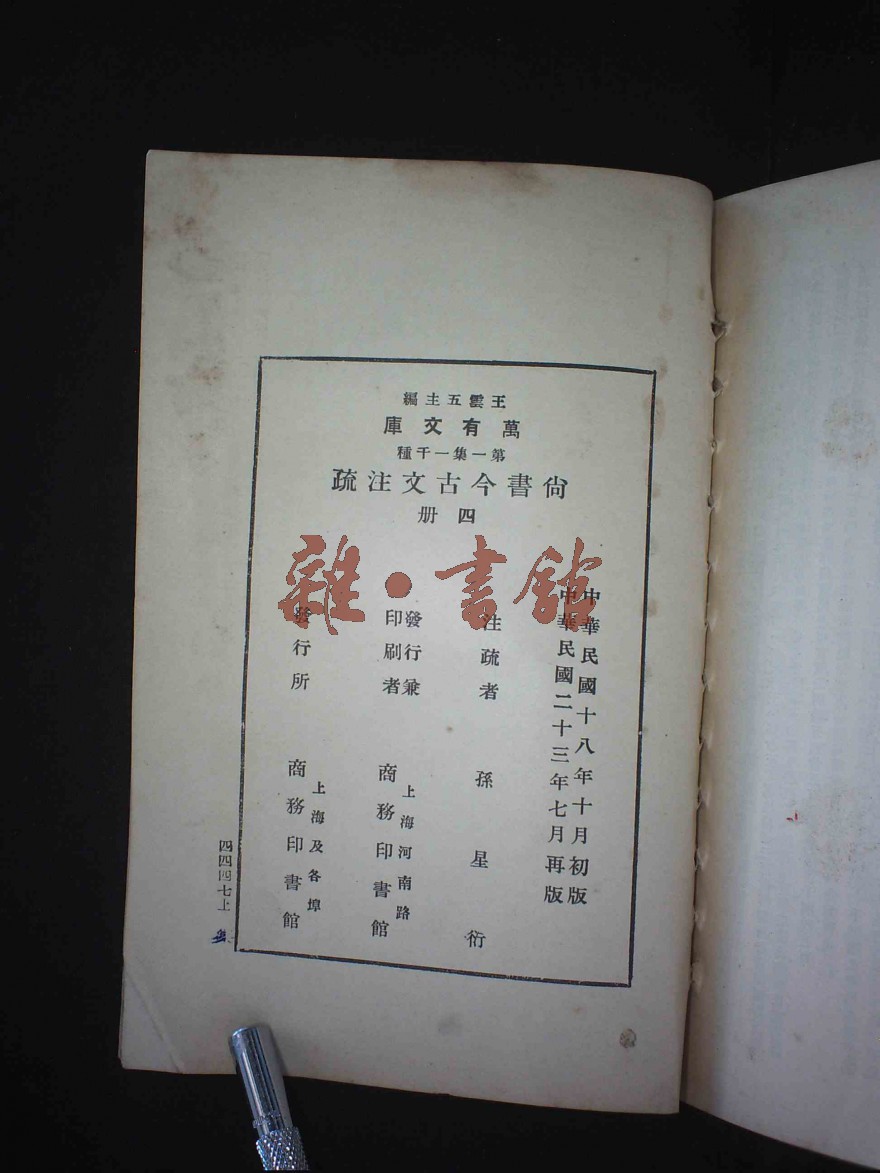 王雲五主編
萬有文庫
第一集一千種
尙書今古文注疏
四册
中華民國十八年十月初版
中華民國二十三年七月再版
注疏者 孫星衍
發行兼
印刷者
上海河南路
商務印書館
發行所
上海及各埠
商務印書館
四四四七上
雜·書館